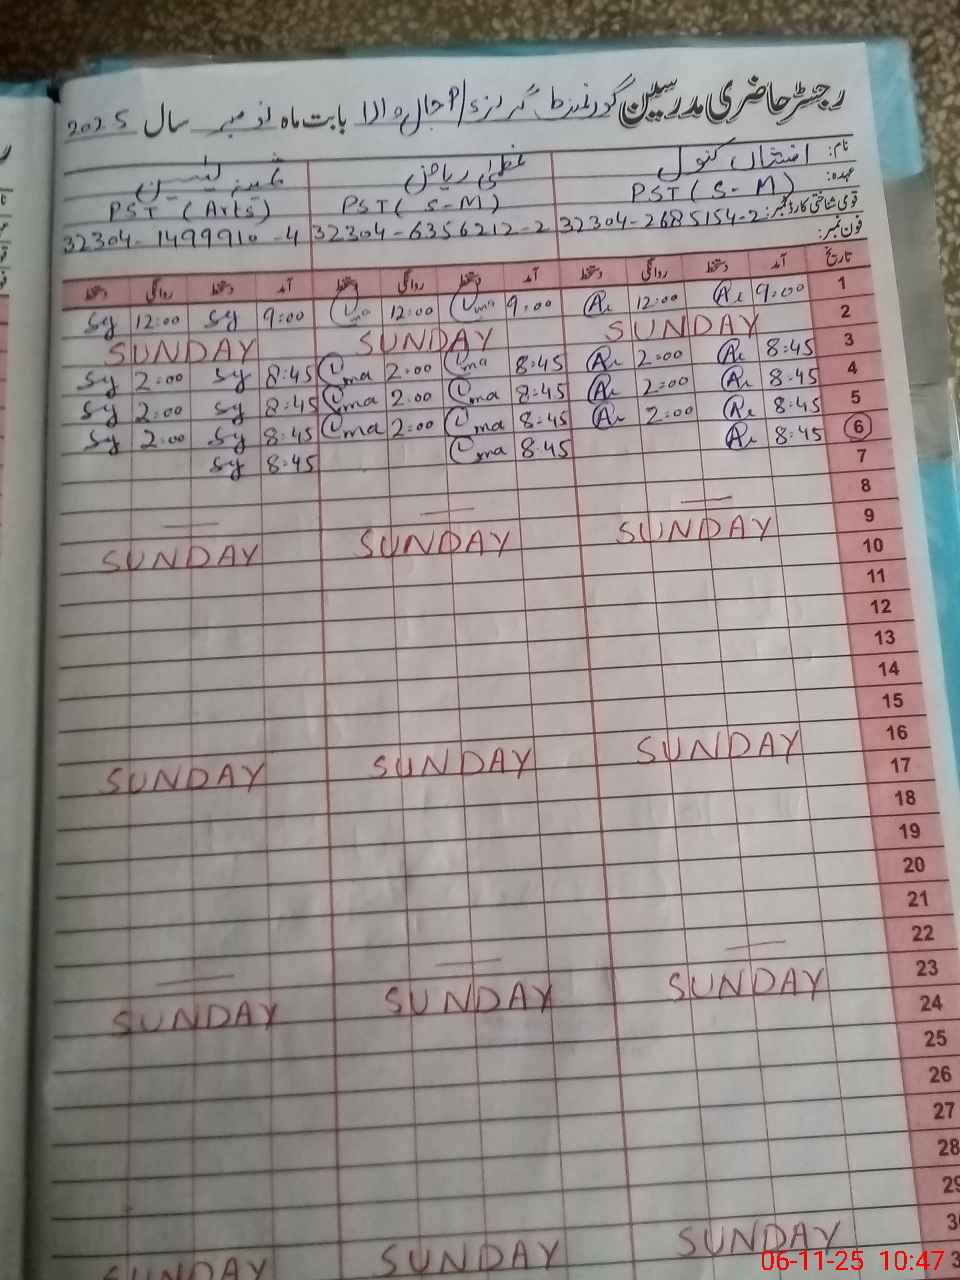 رجسٹر حاضری مدرسین گورنمنٹ گرلز P/S جال والا بابت ماہ نومبر سال 2025
نام: کنول عظمیٰ ریاض
عہدہ: PST (S-M) PST (S-M) PST (Arts)
قومی شناختی کارڈ نمبر: 32304-2685154-2 32304-6356212-2 32304-1499910-4
فون نمبر:
تاریخ آمد دستخط روانگی دستخط آمد دستخط روانگی دستخط آمد دستخط روانگی دستخط
1 9:00 12:00 9:00 12:00 9:00 Sy 12:00 Sy
2 SUNDAY SUNDAY SUNDAY
3 8:45 2:00 8:45 Uma 2:00 Uma 8:45 Sy 2:00 Sy
4 8:45 2:00 8:45 Uma 2:00 Uma 8:45 Sy 2:00 Sy
5 8:45 2:00 8:45 Uma 2:00 Uma 8:45 Sy 2:00 Sy
6 8:45 8:45 Uma 8:45 Sy
7
8
9 SUNDAY SUNDAY SUNDAY
10
11
12
13
14
15
16 SUNDAY SUNDAY SUNDAY
17
18
19
20
21
22
23 SUNDAY SUNDAY SUNDAY
24
25
26
27
28
29
30 SUNDAY SUNDAY SUNDAY
06-11-25 10:47